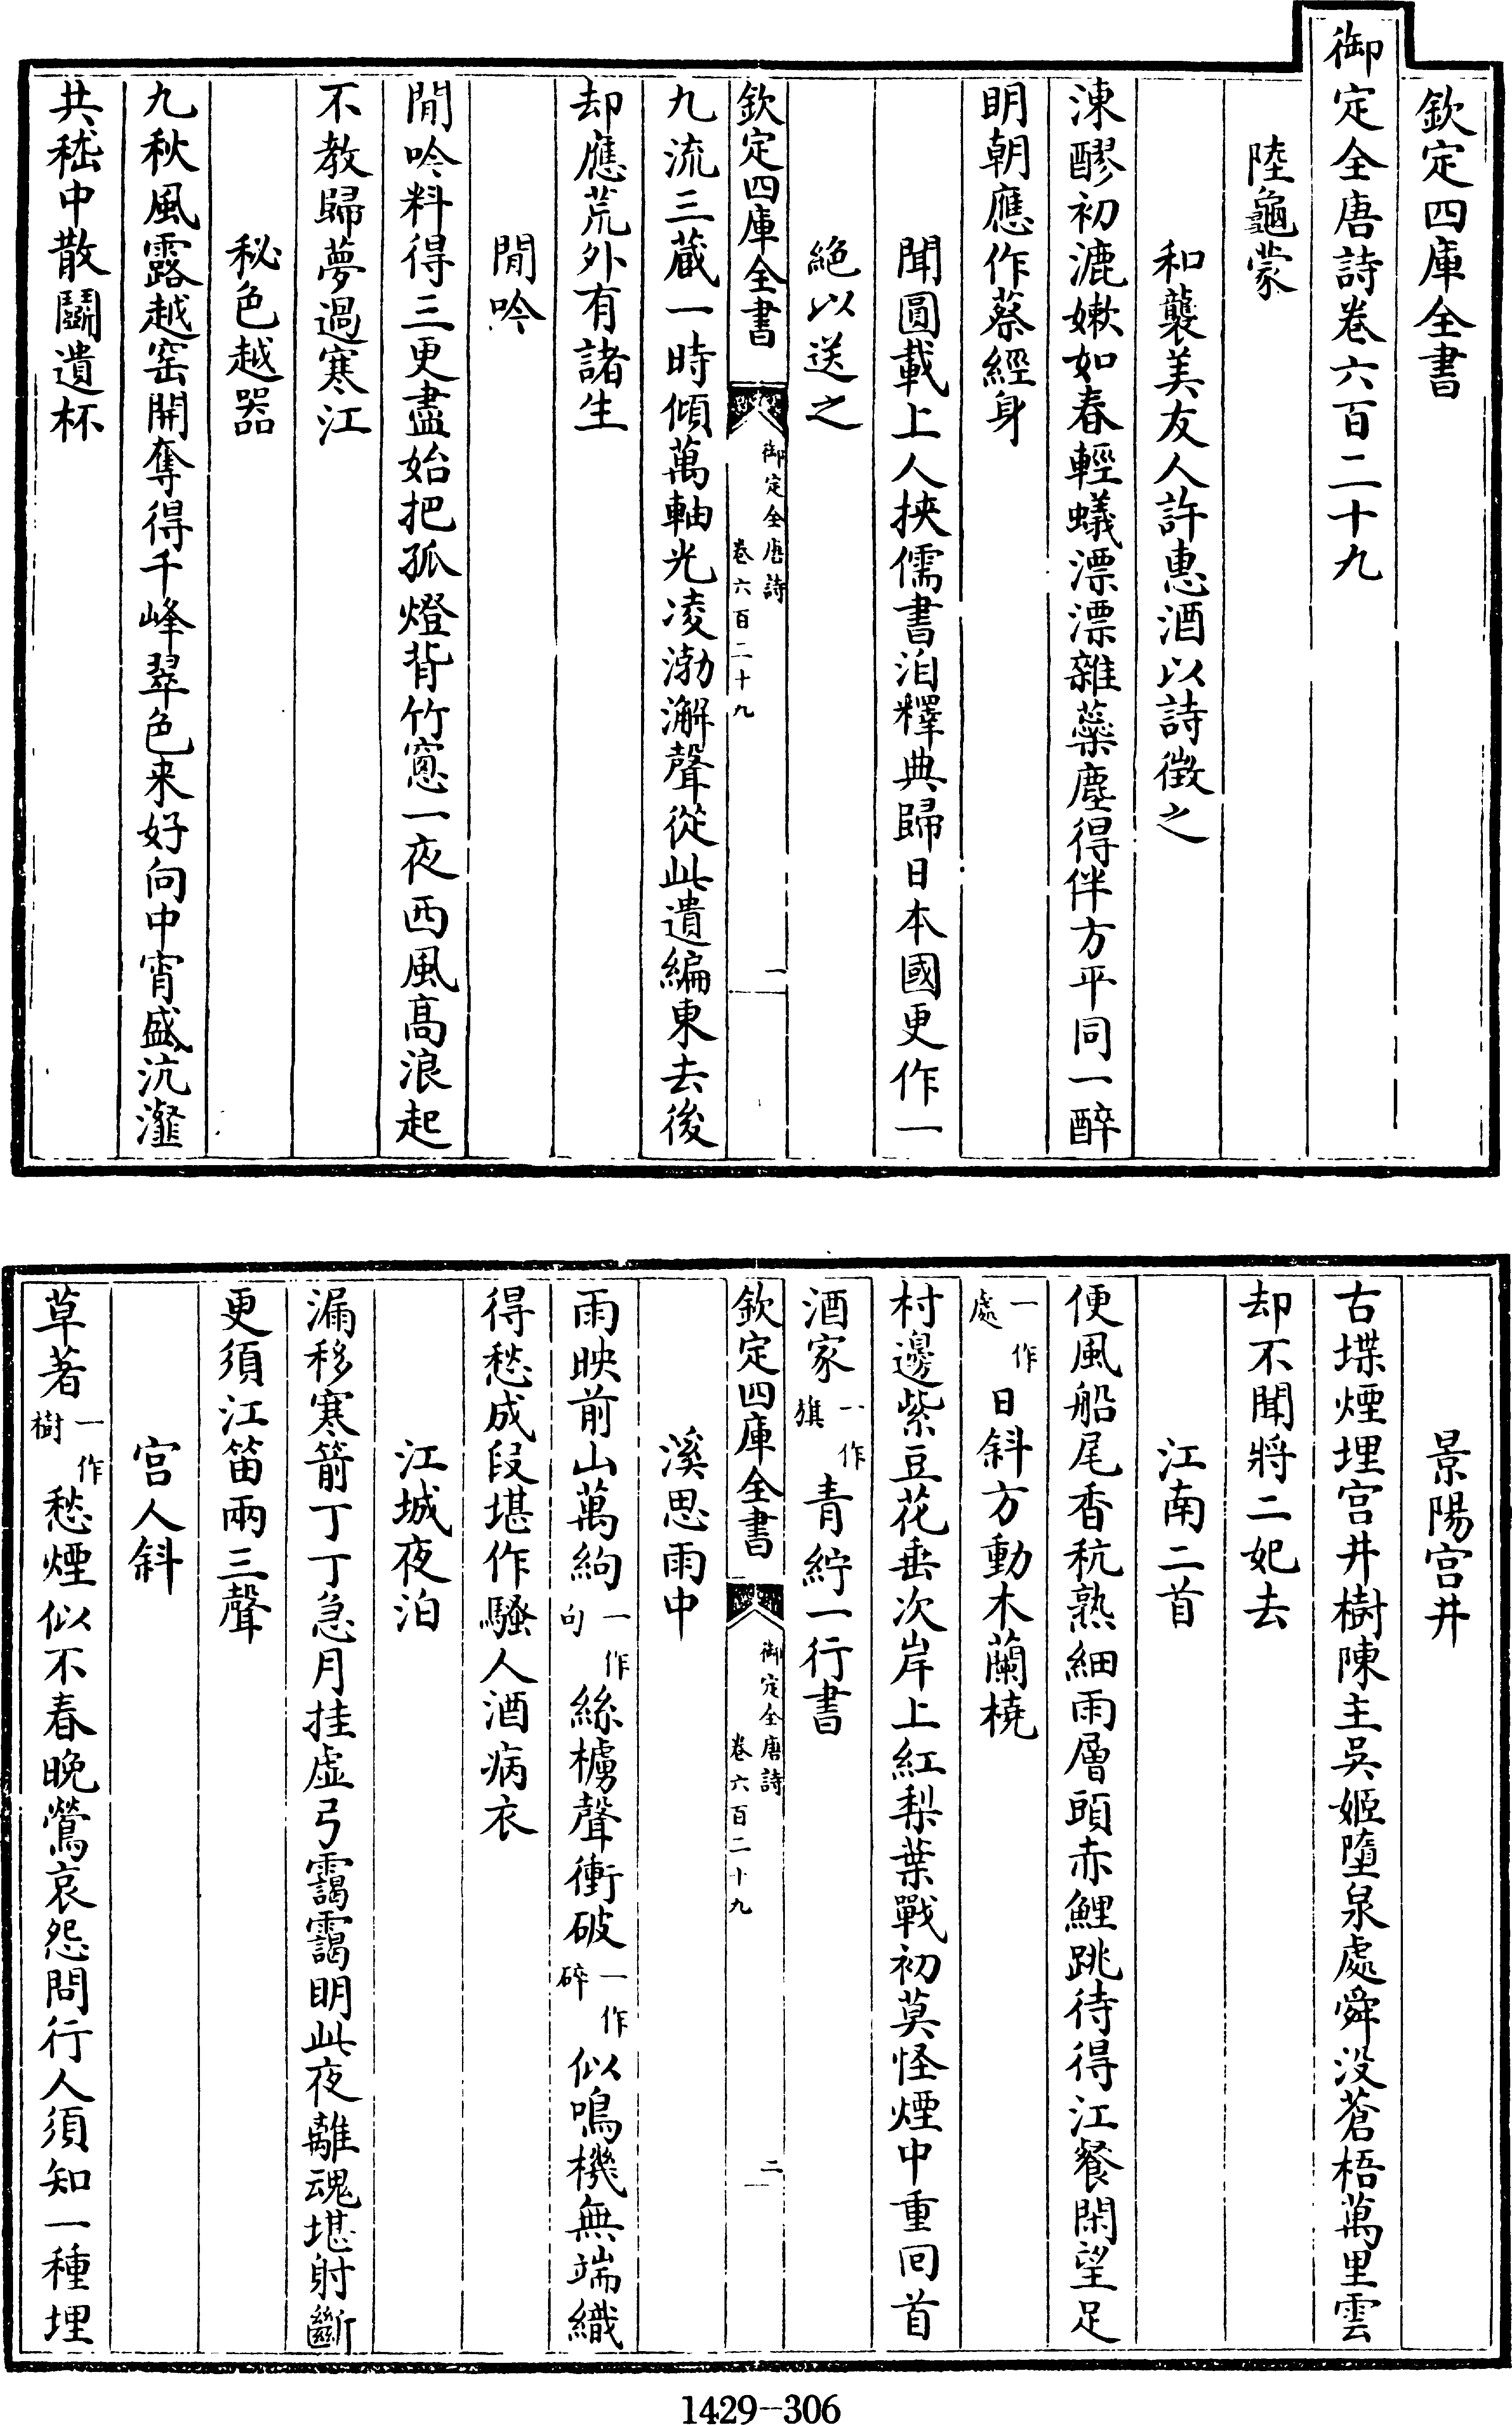 欽定四庫全書
御定全唐詩卷六百二十九
陸龜蒙
和襲美友人許惠酒以詩徵之
凍醪初漉嫩如春輕蟻漂漂雜蘂塵得伴方平同一醉
明朝應作蔡經身
聞圓載上人挾儒書洎釋典歸日本國更作一
絶以送之
九流三藏一時傾萬軸光凌渤澥聲從此遺編東去後
却應荒外有諸生
閒吟
閒吟料得三更盡始把孤燈背竹窻一夜西風髙浪起
不教歸夢過寒江
秘色越器
九秋風露越窑開奪得千峰翠色来好向中宵盛沆瀣
共嵇中散鬭遺杯
欽定四庫全書
御定全唐詩
卷六百二十九
一
景陽宫井
古堞煙埋宫井樹陳主吳姬墮泉處舜没蒼梧萬里雲
却不聞將二妃去
江南二首
便風船尾香秔熟細雨層頭赤鯉跳待得江餐閑望足
一作處日斜方動木蘭橈
村邊紫豆花垂次岸上紅梨葉戰初莫怪煙中重回首
酒家一作旗青紵一行書
溪思雨中
雨映前山萬絇一作句絲櫓聲衝破一作碎似鳴機無端織
得愁成段堪作騷人酒病衣
江城夜泊
漏移寒箭丁丁急月挂虛弓靄靄明此夜離魂堪射斷
更須江笛兩三聲
宫人斜
草著一作樹愁煙似不春晚鶯哀怨問行人須知一種埋
欽定四庫全書
御定全唐詩
卷六百二十九
二
1429-306